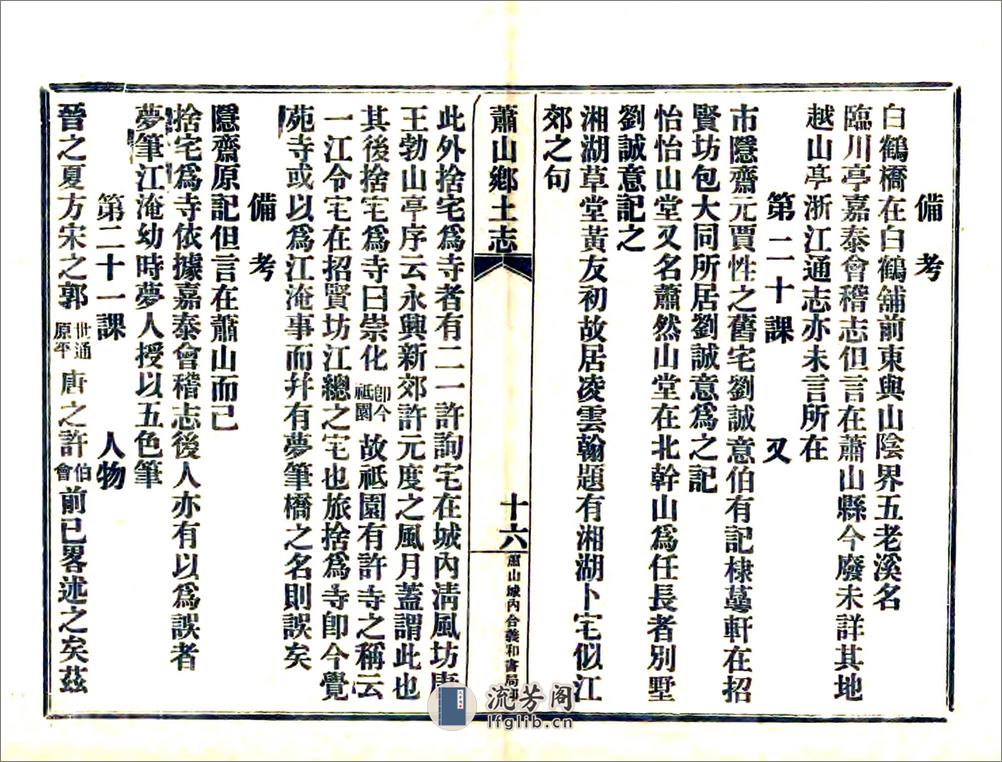 備考
白鶴橋在白鶴舖前東與山陰界五老溪名
臨川亭嘉泰會稽志但言在蕭山縣今廢未詳其地
越山亭浙江通志亦未言所在
第二十課 又
市隱齋元賈性之舊宅劉誠意伯有記棣蕚軒在招
賢坊包大同所居劉誠意爲之記
怡怡山堂又名蕭然山堂在北幹山爲任長者別墅
劉誠意記之
湘湖草堂黃友初故居凌雲翰題有湘湖卜宅似江
郊之句
蕭山鄉土志
十六
蕭山城內合義和書局印
此外捨宅爲寺者有二一許詢宅在城內淸風坊唐
王勃山亭序云永興新郊許元度之風月蓋謂此也
其後捨宅爲寺曰崇化卽今祗園故祗園有許寺之稱云
一江令宅在招賢坊江總之宅也旅捨爲寺卽今覺
苑寺或以爲江淹事而幷有夢筆橋之名則誤矣
備考
隱齋原記但言在蕭山而已
捨宅爲寺依據嘉泰會稽志後人亦有以爲誤者
夢筆江淹幼時夢人授以五色筆
第二十一課 人物
晉之夏方宋之郭世通原平唐之許伯會前已畧述之矣茲
流芳阁
lfglib.cn